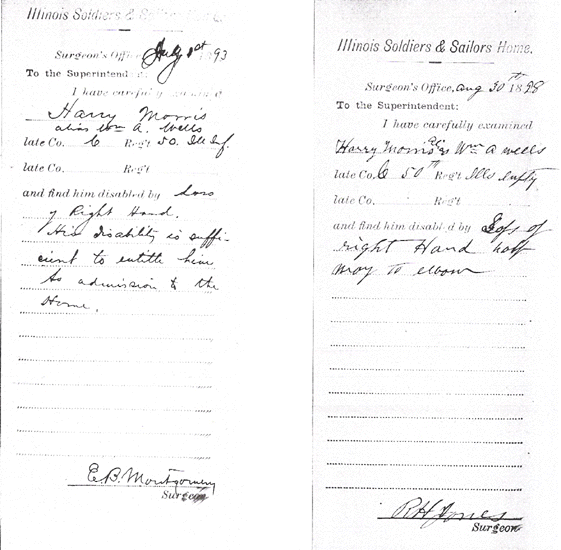 Illinois Soldiers & Sailors Home.
Surgeon's Office, 1st 93
To the Superintendent:
I have carefully examined
Harry Morris
alias Wm A. Wells
late Co. C Reg't 50. Ill Inf.
late Co. Reg't
and find him disabled by Loss
of Right Hand.
His disability is suffi-
cient to entitle him
to admission to the
Home.
E.B. Montgomery
Surgeon
Illinois Soldiers & Sailors Home.
Surgeon's Office, Aug 30th 1898
To the Superintendent:
I have carefully examined
Harry Morris Wm A Wells
late Co. C 50th Reg't Ills
late Co. Reg't
and find him disabled by Loss of
right Hand half
way to elbow
R H Jones
Surgeon